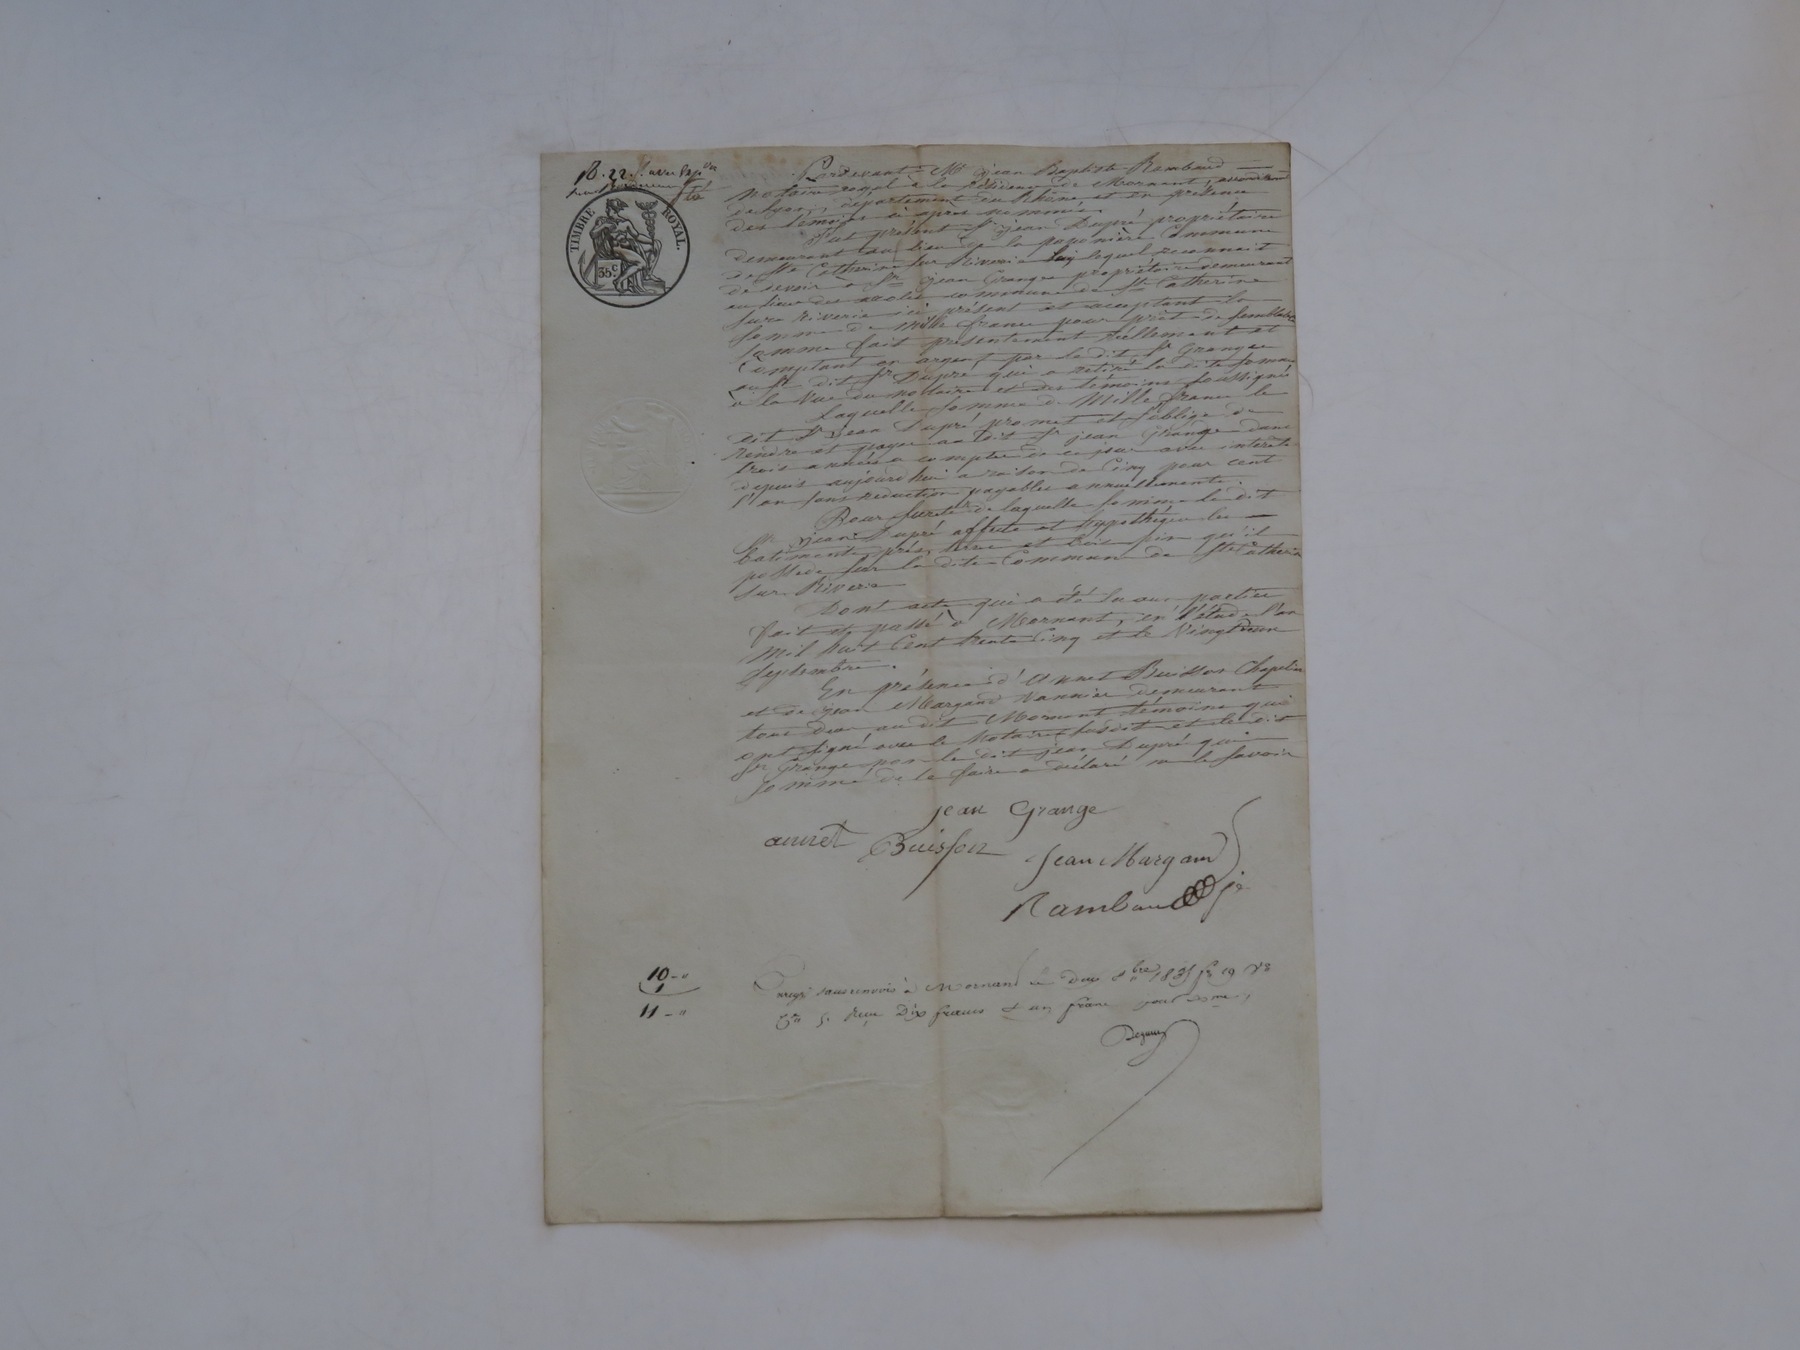 TIMBRE ROYAL.
35 c.
Pardevant Me jean Baptiste Rambaud
Notaire royal à la résidence de Mornant, arrondisst
de Lyon, département du Rhône, et en présence
des témoins ci après nommés.
fut présent Sr jean Dupré propriétaire
demeurant au lieu de la commune
de Ste Catherine sur Riverie lequel reconnait
de devoir à Sr jean Grange propriétaire demeurant
au lieu des commune de Ste Catherine
sur Riverie ici présent et acceptant la
Somme de Mille francs pour prêt de semblable
somme fait présentement réellement et
Comptant en argent par le dit Sr Grange
au dit Sr Dupré qui a retiré la dite somme
à la Vue du notaire et des témoins soussignés
Laquelle somme de Mille francs le
dit Sr jean Dupré promet et s'oblige de
rendre et payer au dit Sr jean Grange dans
trois années a compter de ce jour avec intérêts
depuis aujourd'hui a raison de Cinq pour cent
l'an sans réduction payables annuellement.
Pour sureté de laquelle somme le dit
Sr jean Dupré affecte et hypothèque les
batiments, prés, terre et bois pin qu'il
possede sur la dite Commune de Ste Catherine
sur Riverie
Dont acte qui a été lu aux parties
fait et passé à Mornant, en l'étude l'an
Mil huit Cent trente Cinq et le Vingt deux
Septembre.
En présence d'Annet Buisson Chapelier
et de jean Margand Vannier demeurant
tous deux au dit Mornant témoins qui
ont signé avec le Notaire susdit et le dit
Sr Grange non le dit jean Dupré qui
sommé de le faire a déclaré ne le savoir
jean Grange
annet Buisson
Jean Margand
Rambaud
10 -"
1
11 -"
Enregé sans renvois à Mornant le deux 8bre 1835 fo 19 Vo
Ce 5. Reçu Dix francs & un franc pour dixme,